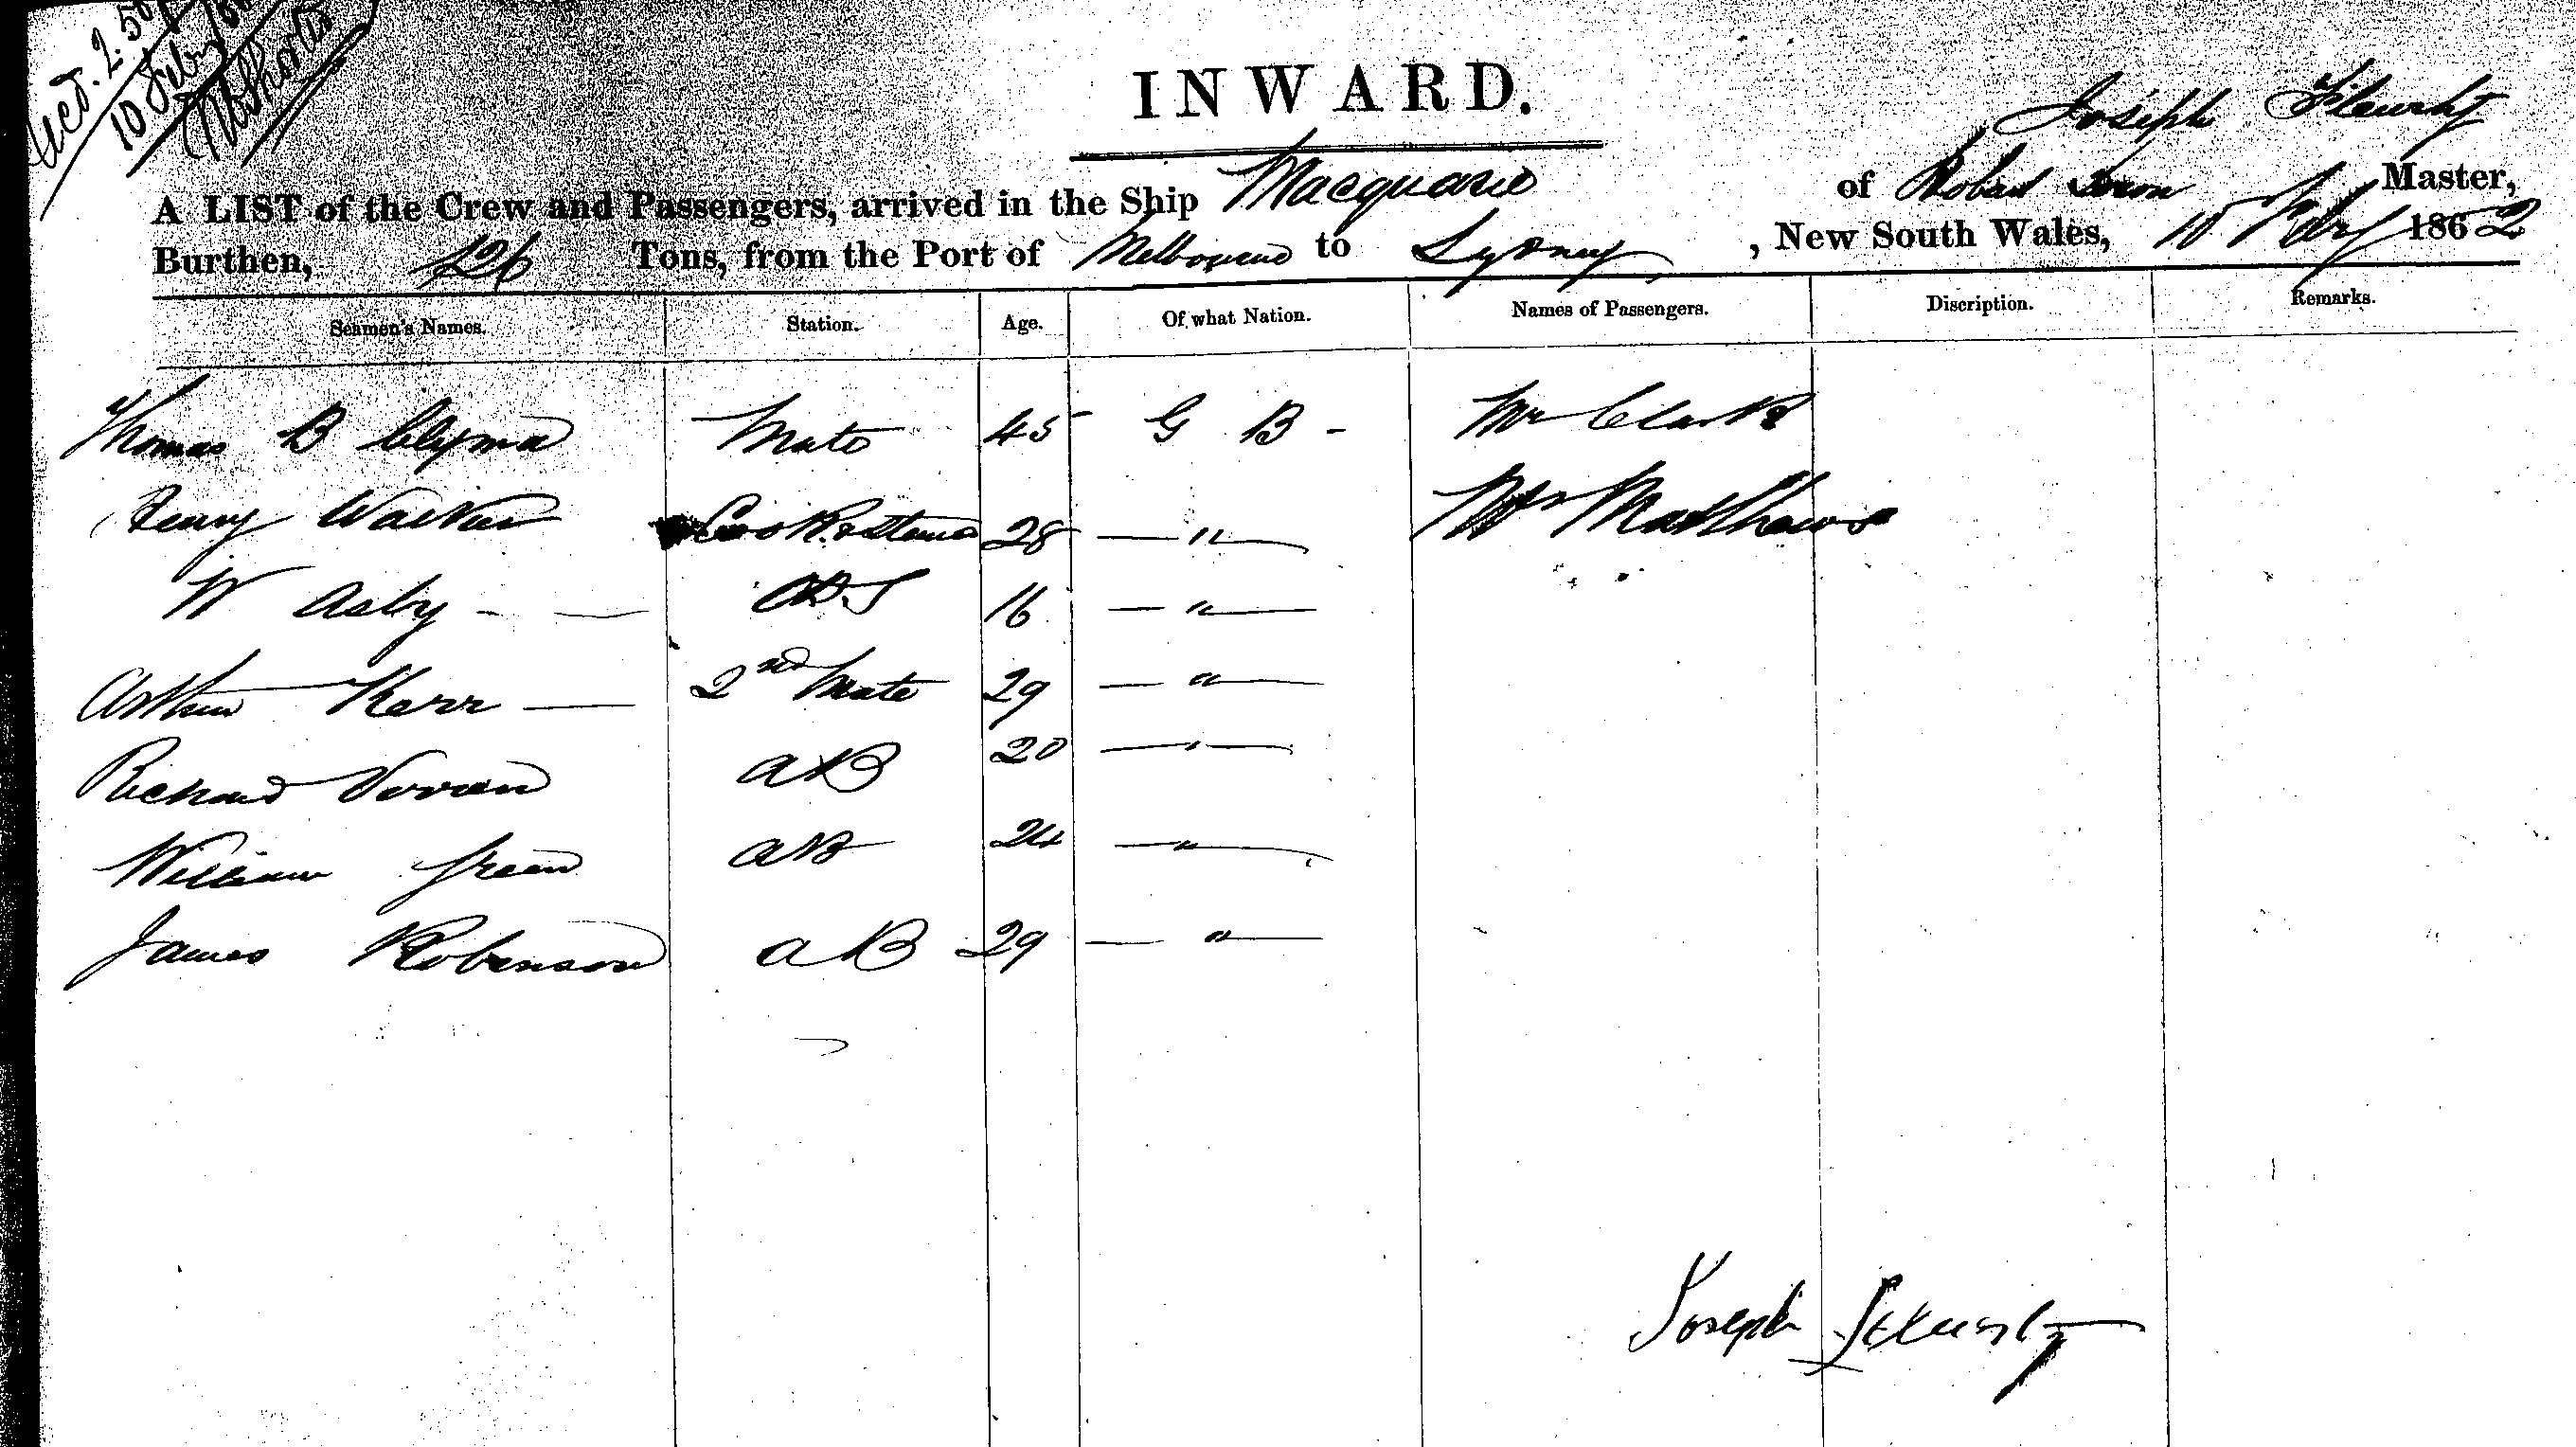 10 Feby
INWARD.
Joseph
A LIST of the Crew and Passengers, arrived in the Ship Macquarie of Hobart Town Master,
Burthen, 126 Tons, from the Port of Melbourne to Sydney, New South Wales, 10 Feby 1862
Seamen's Names. Station. Age. Of what Nation. Names of Passengers. Discription. Remarks.
Thomas B Clyma Mate 45 G B - Mr Clark
Henry Walker Cook & Steward 28 — " — Mathews
W Asby - — O.S 16 — " —
Arthur Kerr — 2nd Mate 29 — " —
Richard AB 20 — " —
William Green AB 24 — " —
James Robinson AB 29 — " —
Joseph